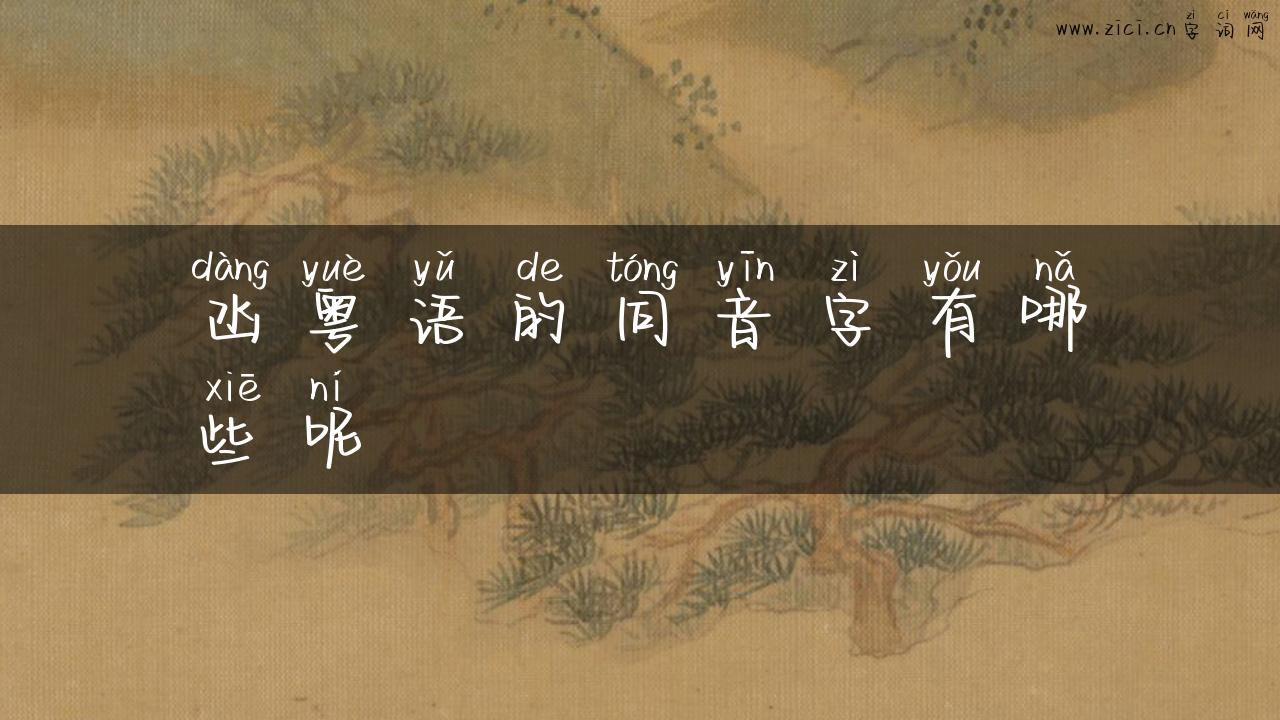 zì cí wǎng
www.zici.cn 字 词 网
dàng yuè yǔ de tóng yīn zì yǒu nǎ
凼 粤 语 的 同 音 字 有 哪
xiē ní
些 呢